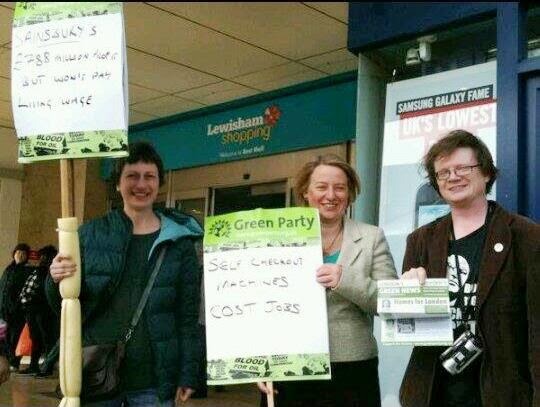 SAINSBURY'S
£788 MILLION PROFIT
BUT WON'T PAY
LIVING WAGE
BLOOD
FOR OIL
Lewisham
shopping
Welcome to
SAMSUNG GALAXY FAME
UK'S LOWEST
Green Party
SELF CHECKOUT
MACHINES
COST JOBS
BLOOD
FOR OIL
GREEN NEWS
Homes for London